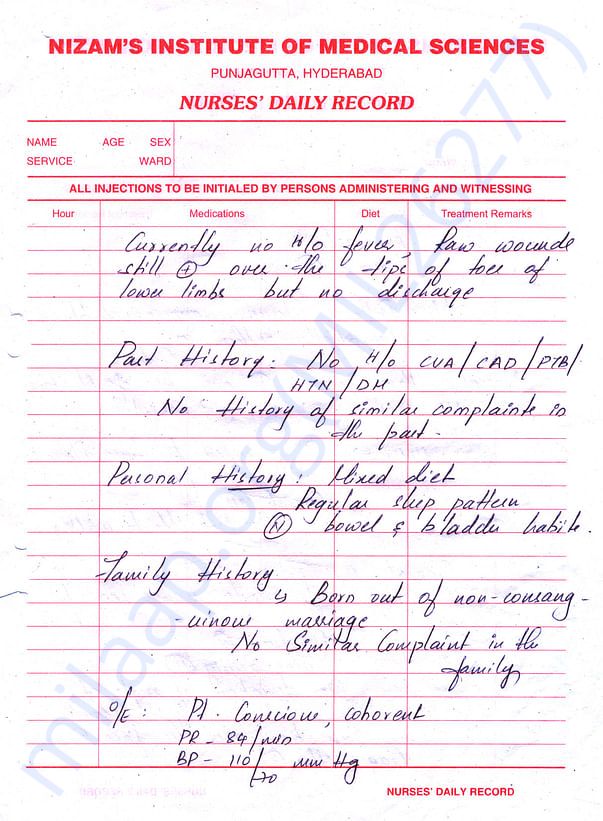 NIZAM'S INSTITUTE OF MEDICAL SCIENCES
PUNJAGUTTA, HYDERABAD
NURSES' DAILY RECORD
NAME AGE SEX
SERVICE WARD
ALL INJECTIONS TO BE INITIALED BY PERSONS ADMINISTERING AND WITNESSING
Hour Medications Diet Treatment Remarks
Currently no H/o fever, Raw wounds
still ⊕ over the tips of toes of
lower limbs but no discharge
Past History: No H/o CVA/CAD/PTB/
HTN/DM
No History of similar complaints in
the past.
Personal History: Mixed diet
Regular sleep pattern
Ⓝ bowel & bladder habits.
Family History
↳ Born out of non-consang-
-uinous marriage
No Similar Complaint in the
family
O/E: Pt. Conscious, coherent
PR - 84/min
BP - 110/70 mm Hg
NURSES' DAILY RECORD
milaap.org(MIL26277)